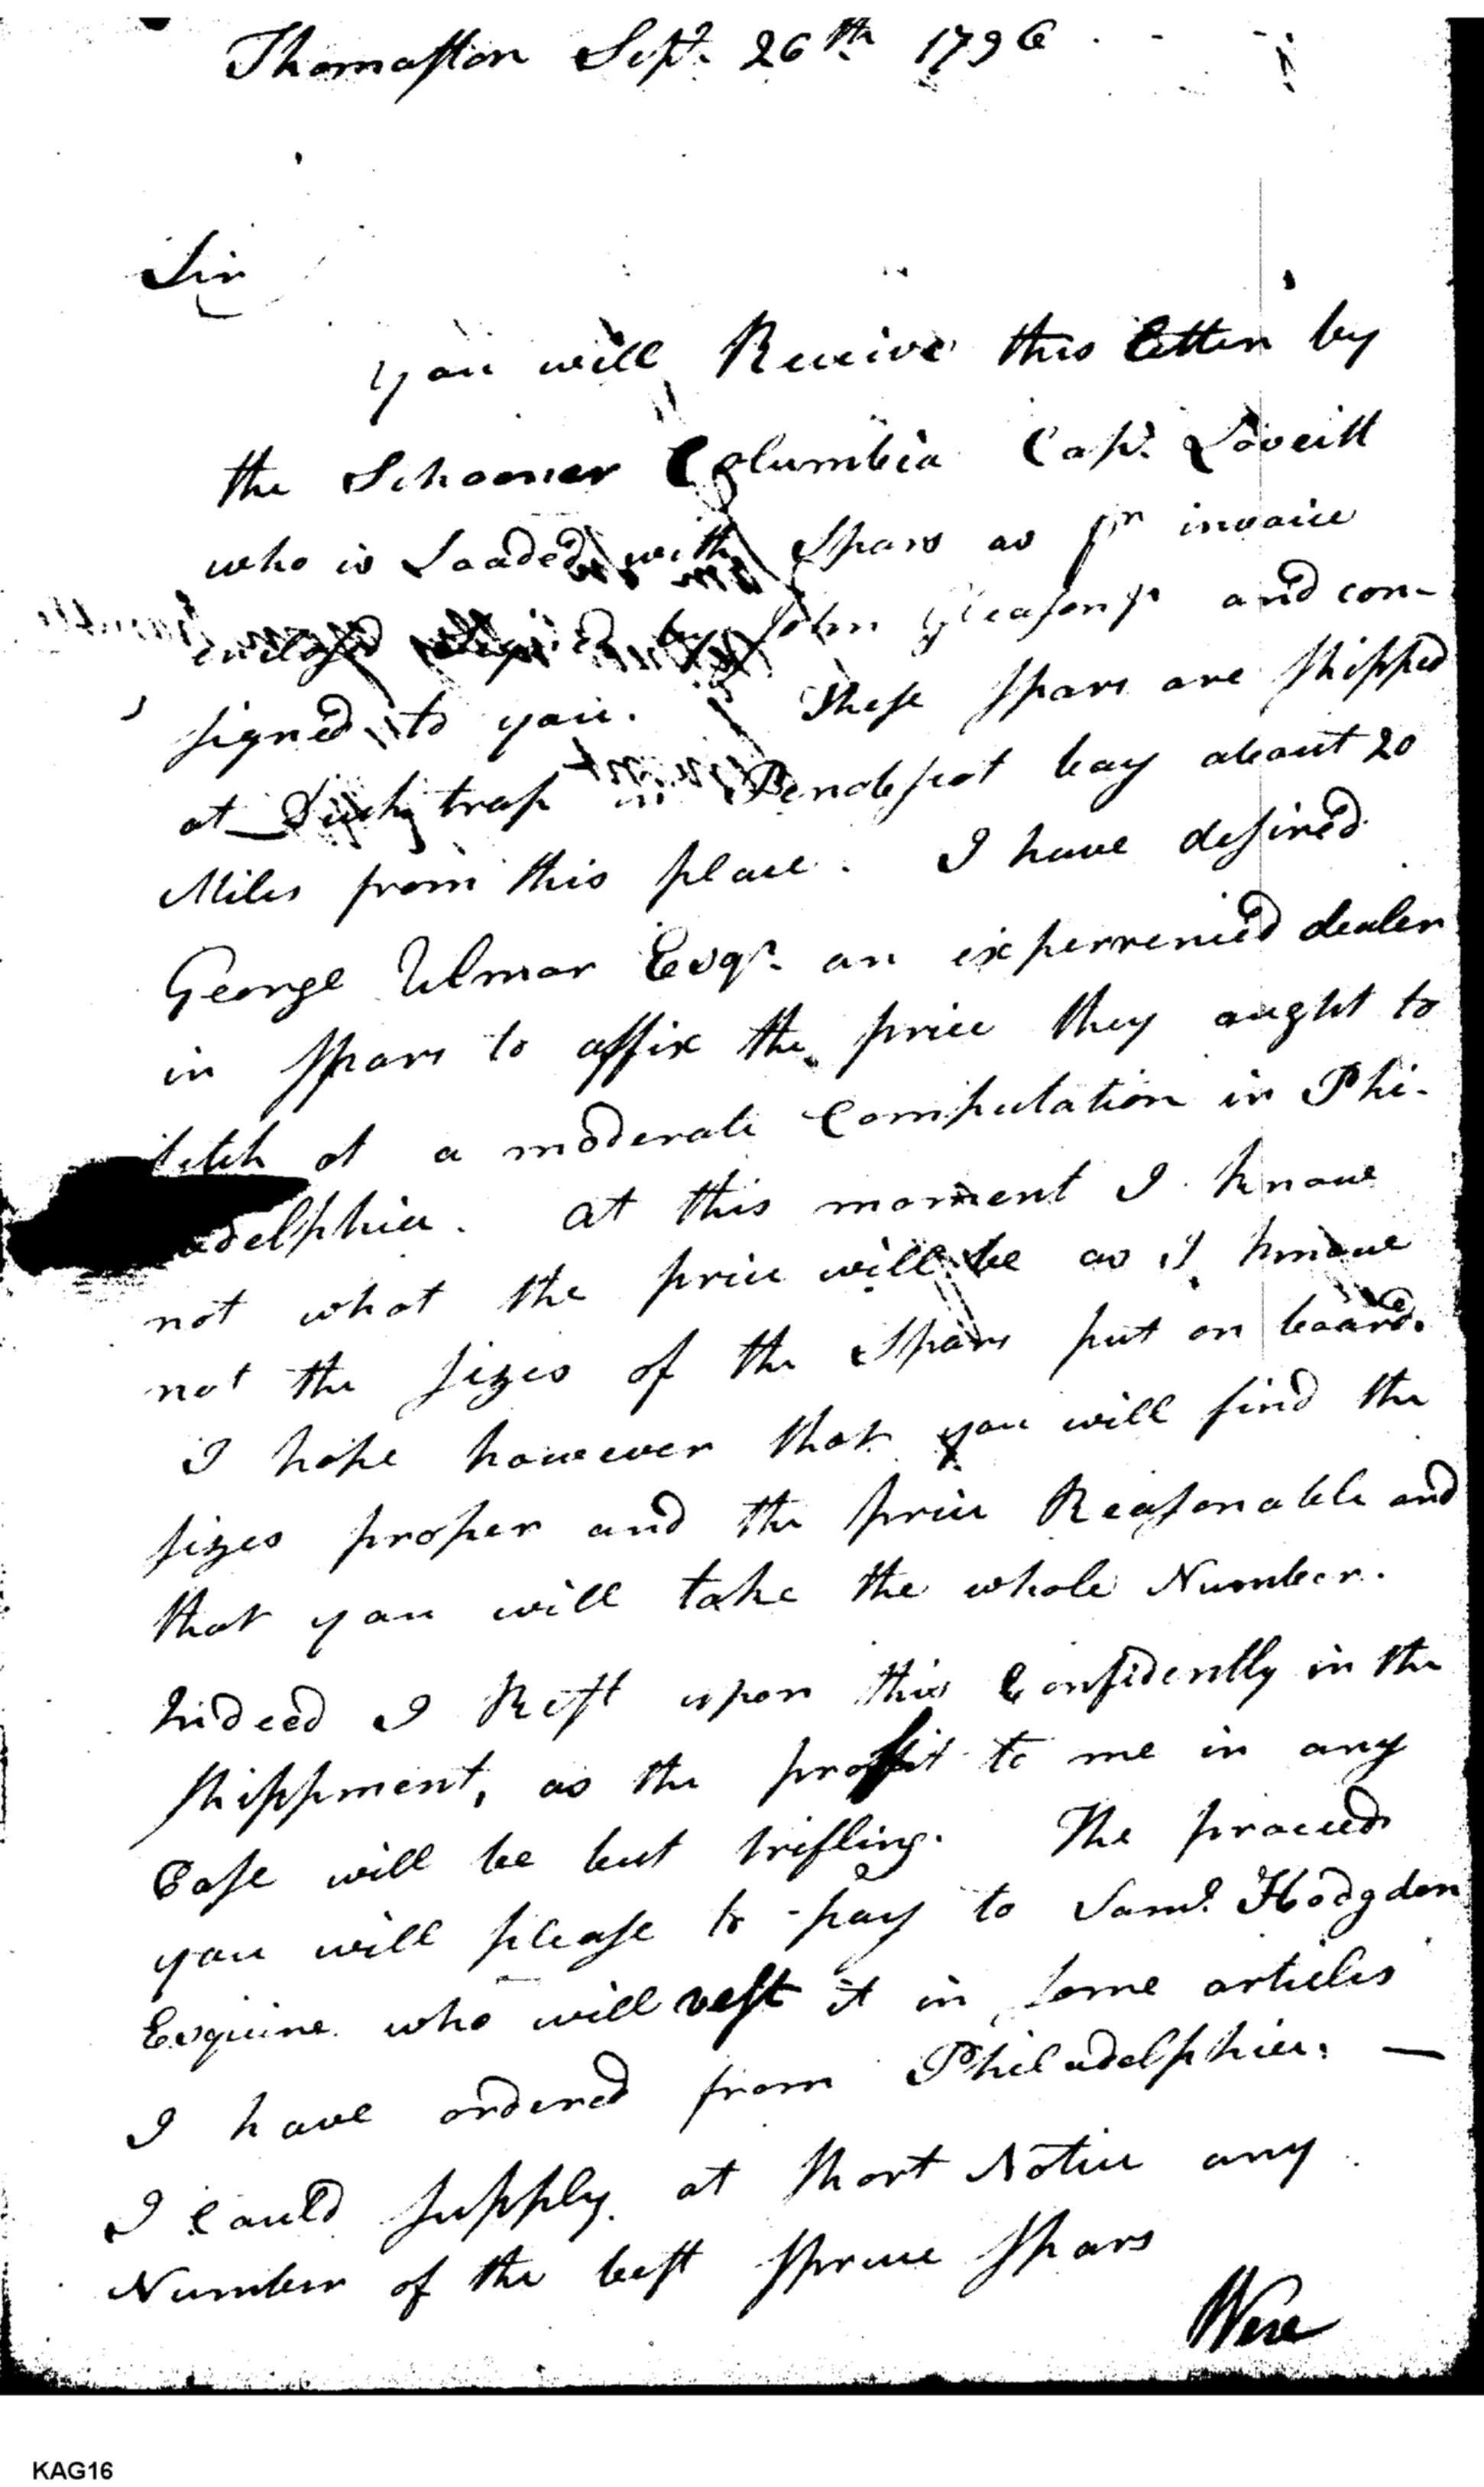 Thomaston Sept. 26th 1796
Sir
you will Receive this letter by
the Schooner Columbia Capt. Loveitt
who is Loaded with Spars as pr invoice
enclosed signed by John Gleason jr and con-
signed to you. These spars are shipped
at Duck trap in Penobscot bay about 20
Miles from this place. I have desired
George Ulmar Esqr. an experrenced dealer
in spars to affix the price they ought to
fetch at a moderate Computation in Phi-
adelphia. at this moment I know
not what the price will be as I know
not the sizes of the Spars put on board.
I hope however that you will find the
sizes proper and the price Reasonable and
that you will take the whole Number.
Indeed I Rest upon this Confidently in the
shippment, as the profit to me in any
Case will be but trifling. The proceeds
you will please to pay to Saml. Hodgdon
Esquire who will vest it in some articles
I have ordered from Philadelphia. —
I Could supply at short Notice any
Number of the best spruce spars
Were
KAG16